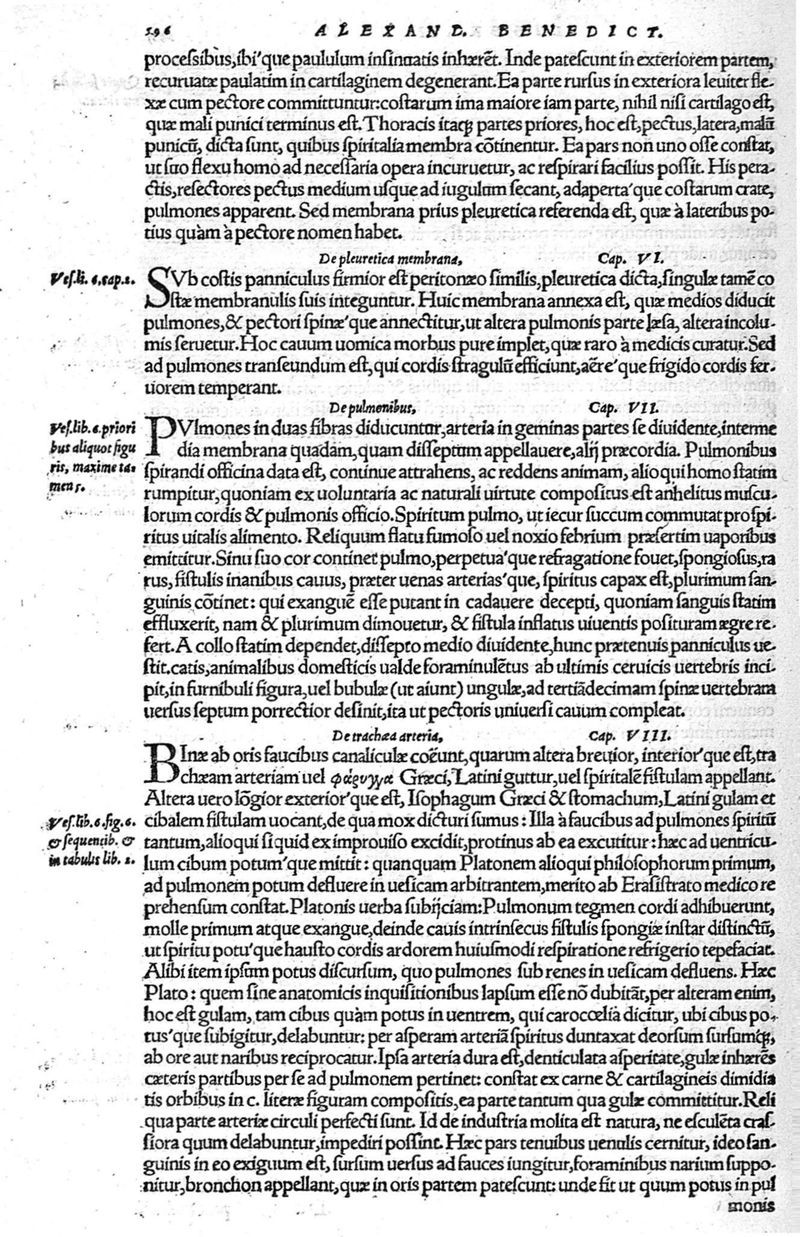 596 ALEXAND. BENEDICT.
processibus,ibi'que paululum insinuatis inhærẽt. Inde patescunt in exteriorem partem,
recuruatæ paulatim in cartilaginem degenerant. Ea parte rursus in exteriora leuiter fle-
xæ cum pectore committuntur: costarum ima maiore iam parte, nihil nisi cartilago est,
quæ mali punici terminus est. Thoracis itaq; partes priores, hoc est, pectus, latera, malũ
punicũ, dicta sunt, quibus spiritalia membra cõtinentur. Ea pars non uno osse constat,
ut suo flexu homo ad necessaria opera incuruetur, ac respirari facilius possit. His pera-
ctis, resectores pectus medium usque ad iugulum secant, adaperta'que costarum crate,
pulmones apparent. Sed membrana prius pleuretica referenda est, quæ à lateribus po-
tius quàm à pectore nomen habet.
De pleuretica membrana, Cap. VI.
Ves. li. 6. cap. 2.
SVb costis panniculus firmior est peritonæo similis, pleuretica dicta, singulæ tamẽ co
stæ membranulis suis integuntur. Huic membrana annexa est, quæ medios diducit
pulmones, & pectori spinæ'que annectitur, ut altera pulmonis parte læsa, altera incolu-
mis seruetur. Hoc cauum uomica morbus pure implet, quæ raro à medicis curatur. Sed
ad pulmones transeundum est, qui cordis stragulũ efficiunt, aëre'que frigido cordis fer-
uiorem temperant.
De pulmonibus, Cap. VII.
Ves. lib. 6. priori
bus aliquot figu
ris, maxime ta-
men 5.
PVlmones in duas fibras diducuntur, arteria in geminas partes se diuidente, interme
dia membrana quadam, quam disseptum appellauere, alij præcordia. Pulmonibus
spirandi officina data est, continue attrahens, ac reddens animam, alioqui homo statim
rumpitur, quoniam ex uoluntaria ac naturali uirtute compositus est anhelitus muscu-
lorum cordis & pulmonis officio. Spiritum pulmo, ut iecur succum commutat pro spi-
ritus uitalis alimento. Reliquum flatu fumoso uel noxio febrium præsertim uaporibus
emittitur. Sinu suo cor continet pulmo, perpetua'que refragatione fouet, spongiosus, ra
rus, fistulis inanibus cauus, præter uenas arterias'que, spiritus capax est, plurimum san-
guinis cõtinet: qui exanguẽ esse putant in cadauere decepti, quoniam sanguis statim
effluxerit, nam & plurimum dimouetur, & fistula inflatus uiuentis posituram ægre re-
fert. A collo statim dependet, dissepto medio diuidente, hunc prætenuis panniculus ue-
stit. catis, animalibus domesticis ualde foraminulẽtus ab ultimis ceruicis uertebris inci-
pit, in furnibuli figura, uel bubulæ (ut aiunt) ungulæ, ad tertiãdecimam spinæ uertebram
uersus septum porrectior desinit, ita ut pectoris uniuersi cauum compleat.
De trachæa arteria, Cap. VIII.
BInæ ab oris faucibus canaliculæ coẽunt, quarum altera breuior, interior'que est, tra
chæam arteriam uel φάρυγγα Græci, Latini guttur, uel spiritalẽ fistulam appellant.
Altera uero lõgior exterior'que est, Isophagum Græci & stomachum, Latini gulam et
Ves. lib. 6. fig. 6.
& sequentib. &
in tabulis lib. 2.
cibalem fistulam uocant, de qua mox dicturi sumus: Illa à faucibus ad pulmones spiritũ
tantum, alioqui si quid ex improuiso excidit, protinus ab ea excutitur: hæc ad uentricu-
lum cibum potum'que mittit: quanquam Platonem alioqui philosophorum primum,
ad pulmonem potum defluere in uesicam arbitrantem, merito ab Erasistrato medico re
prehensum constat. Platonis uerba subijciam: Pulmonum tegmen cordi adhibuerunt,
molle primum atque exangue, deinde cauis intrinsecus fistulis spongiæ instar distinctũ,
ut spiritu potu'que hausto cordis ardorem huiusmodi respiratione refrigerio tepefaciat.
Alibi item ipsum potus discursum, quo pulmones sub renes in uesicam defluens. Hæc
Plato: quem sine anatomicis inquisitionibus lapsum esse nõ dubitãt, per alteram enim,
hoc est gulam, tam cibus quàm potus in uentrem, qui carocœlia dicitur, ubi cibus po-
tus'que subigitur, delabuntur: per asperam arteriã spiritus duntaxat deorsum sursumq;,
ab ore aut naribus reciprocatur. Ipsa arteria dura est, denticulata asperitate, gulæ inhærẽs
cæteris partibus per se ad pulmonem pertinet: constat ex carne & cartilagineis dimidia
tis orbibus in c. literæ figuram compositis, ea parte tantum qua gulæ committitur. Reli
qua parte arteriæ circuli perfecti sunt. Id de industria molita est natura, ne esculẽta cras-
siora quum delabuntur, impediri possint. Hæc pars tenuibus uenulis cernitur, ideo san-
guinis in eo exiguum est, sursum uersus ad fauces iungitur, foraminibus narium suppo-
nitur, bronchon appellant, quæ in oris partem patescunt: unde fit ut quum potus in pul
monis